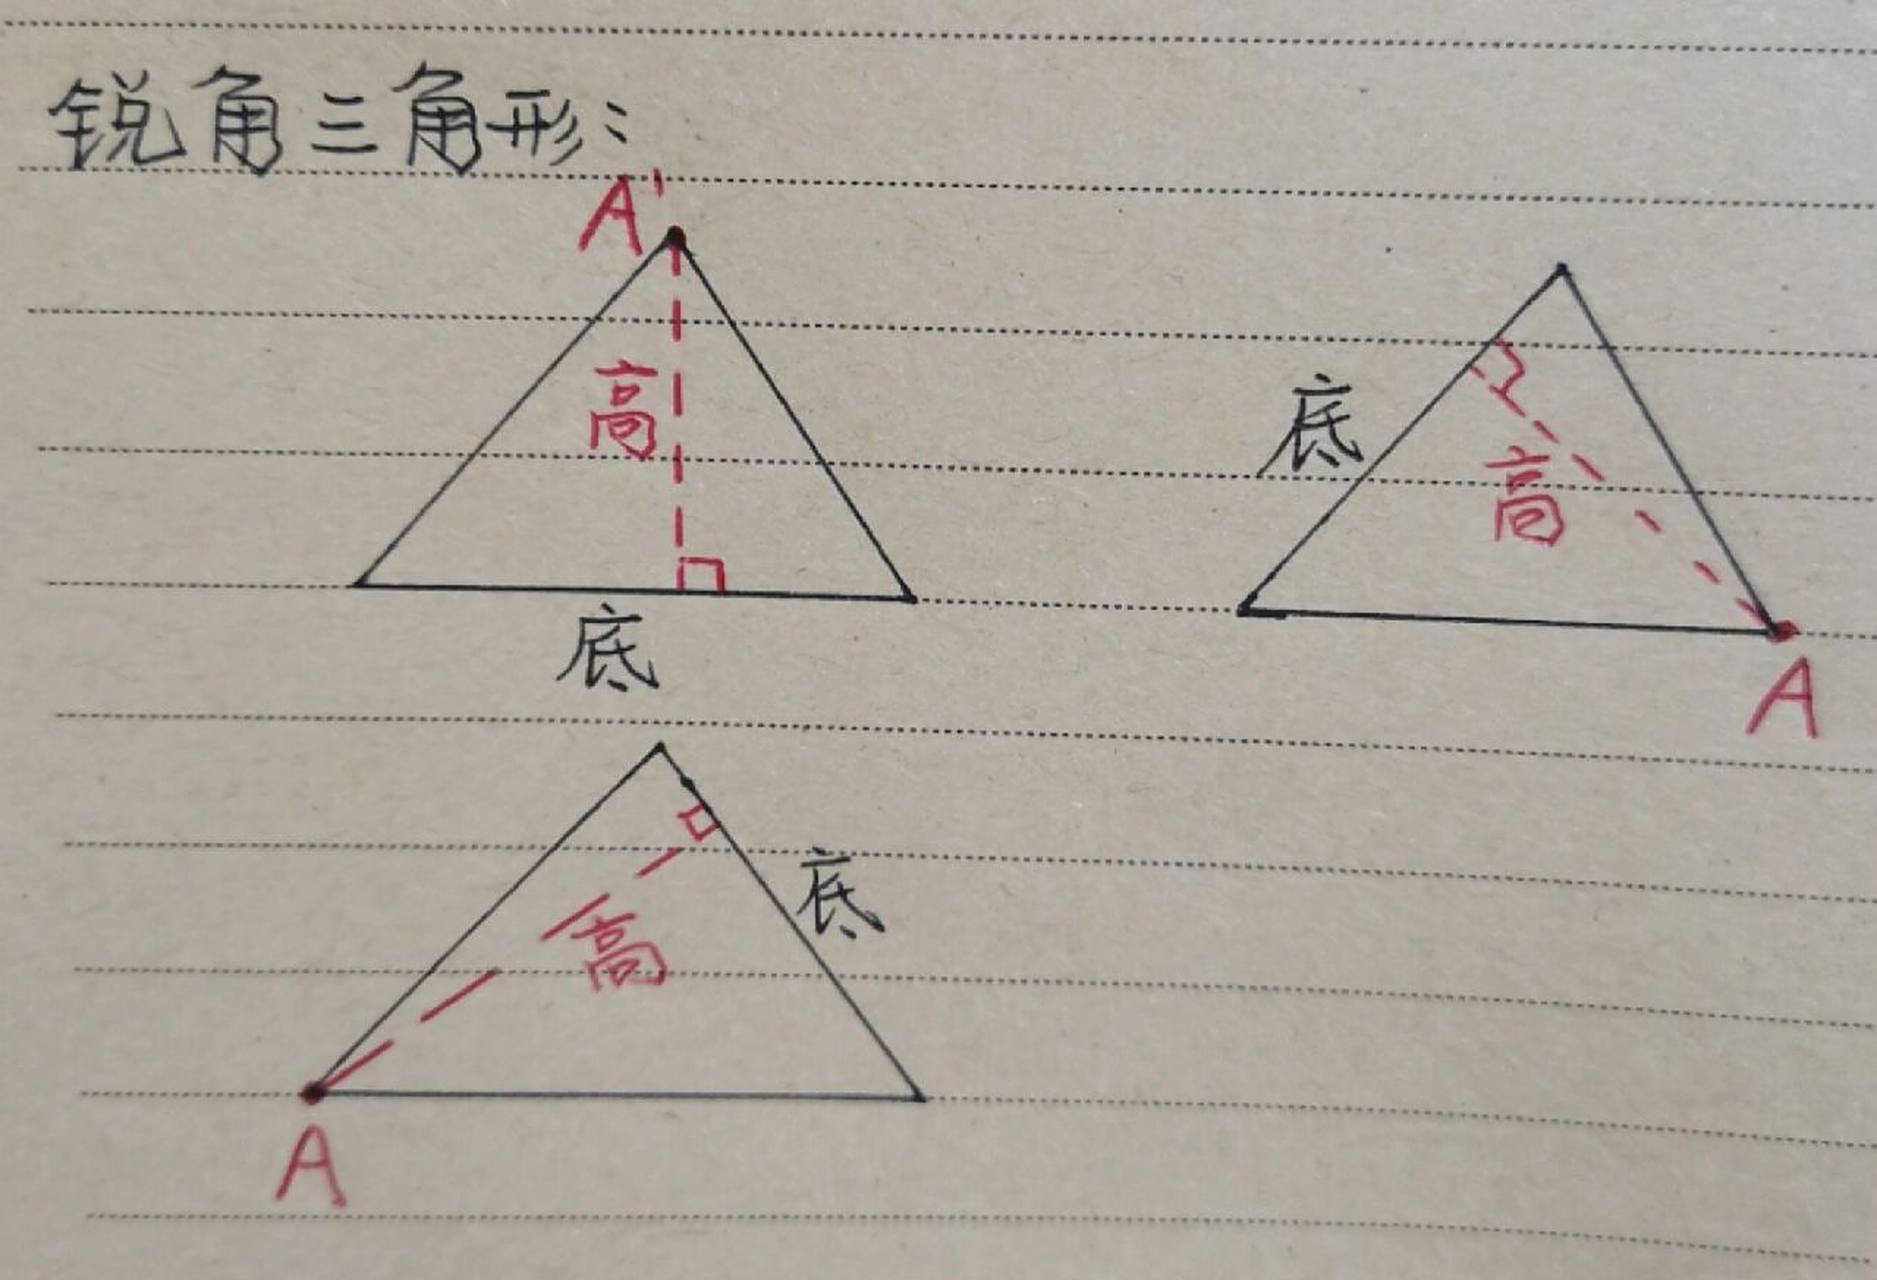 锐角三角形:
A'
高
底
底
高
A
底
高
A